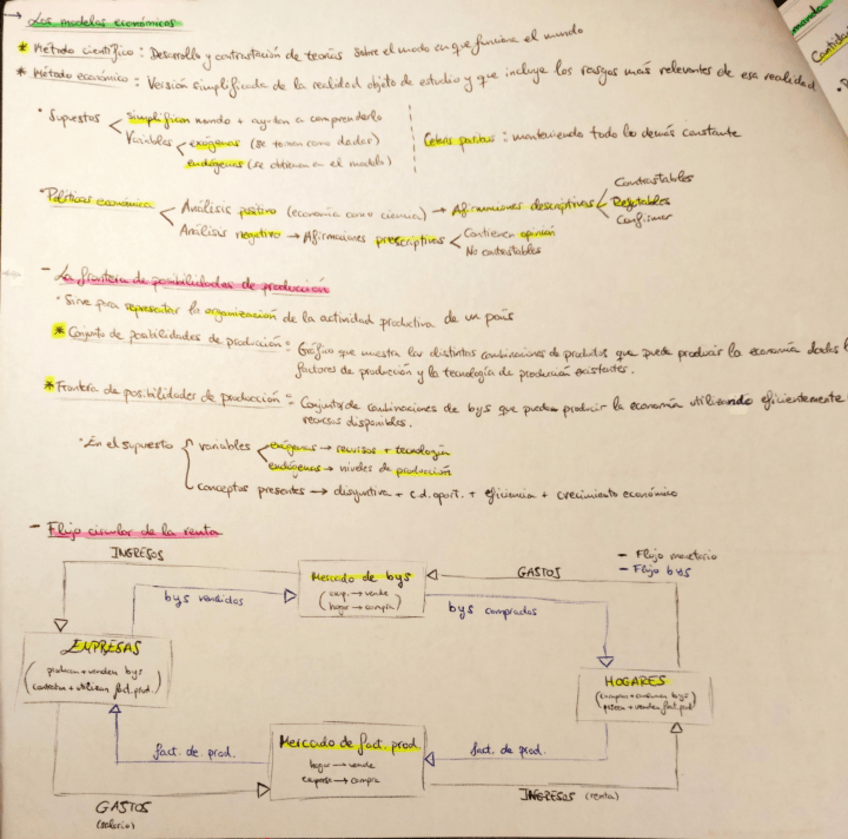 → Los modelos económicos
* Método científico : Desarrollo y contrastación de teorías sobre el modo en que funciona el mundo
* Método económico : Versión simplificada de la realidad objeto de estudio y que incluye los rasgos más relevantes de esa realidad
· Supuestos < simplifican mundo + ayudan a comprenderlo
Variables < exógenas (se toman como dadas)
endógenas (se obtienen en el modelo)
Ceteris paribus : manteniendo todo lo demás constante
· Políticas económica < Análisis positivo (economía como ciencia) → Afirmaciones descriptivas < Contrastables
Refutables
Confirmar
Análisis negativo → Afirmaciones prescriptivas < Contienen opinión
No contrastables
- La frontera de posibilidades de producción
· Sirve para representar la organización de la actividad productiva de un país
* Conjunto de posibilidades de producción : Gráfico que muestra las distintas combinaciones de productos que puede producir la economía dados
factores de producción y la tecnología de producción existentes.
* Frontera de posibilidades de producción : Conjunto de combinaciones de bys que puede producir la economía utilizando eficientemente
recursos disponibles.
· En el supuesto { variables < exógenas → recursos + tecnología
endógenas → niveles de producción
conceptos presentes → disyuntiva + c.d. oport. + eficiencia + crecimiento económico
- Flujo circular de la renta
INGRESOS
- Flujo monetario
- Flujo bys
Mercado de bys
(emp. → vende
hogar → compra)
GASTOS
bys vendidos
bys comprados
EMPRESAS
(producen + venden bys
contratan + utilizan fact. prod.)
HOGARES
(compran + consumen bys
poseen + venden fact. prod)
fact. de prod.
Mercado de fact. prod.
hogar → vende
empresa → compra
fact. de prod.
GASTOS
(salario)
INGRESOS (renta)
manda
Cantida